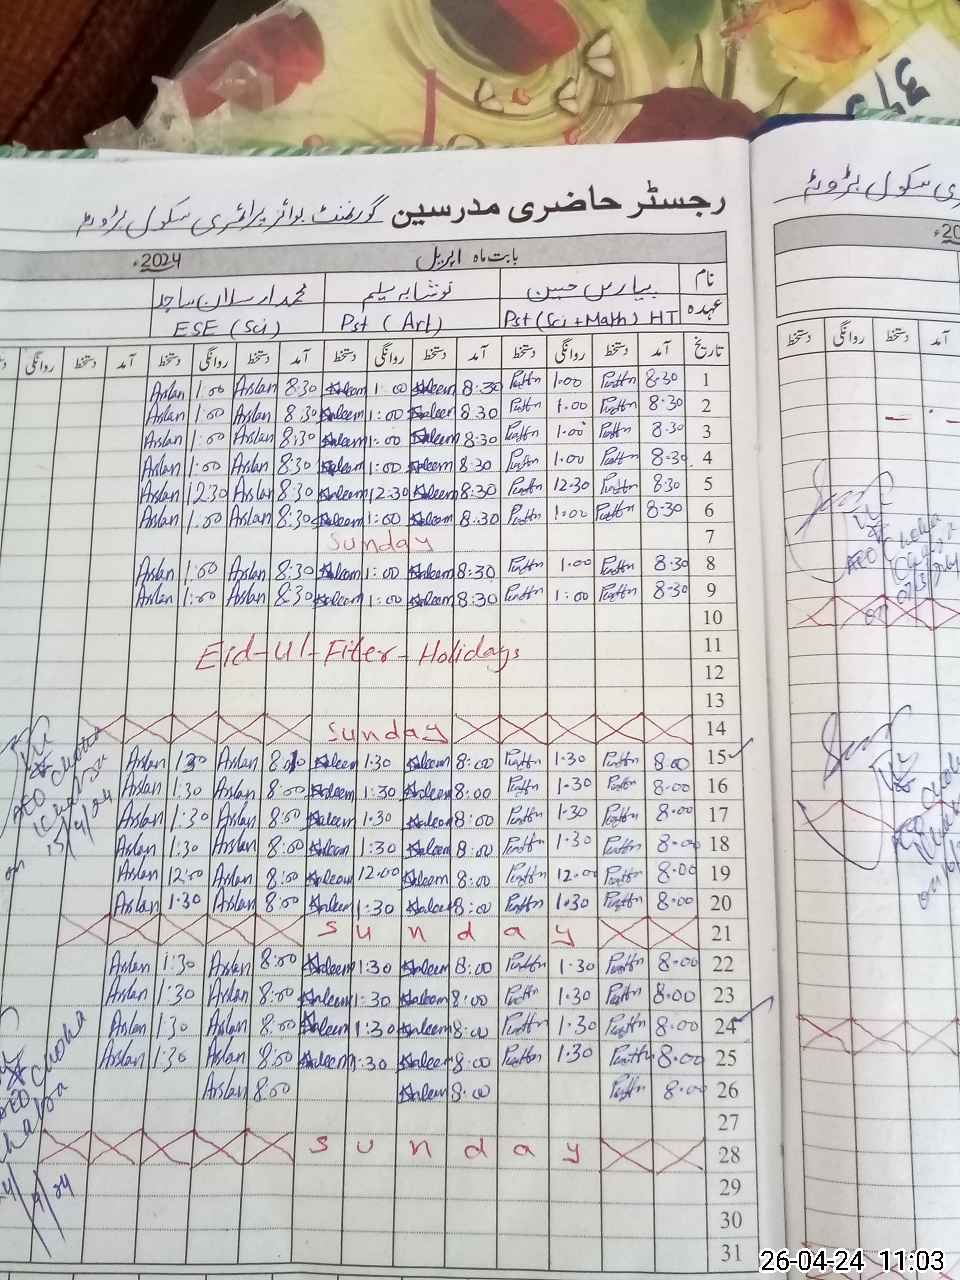 رجسٹر حاضری مدرسین گورنمنٹ بوائز پرائمری سکول بڑوٹہ
بابت ماہ اپریل 2024ء
نام پیارس حسین نوشابہ سلیم محمد ارسلان ساجد
عہدہ Pst (Sci + Math) HT Pst (Art) ESE (Sci)
تاریخ آمد دستخط روانگی دستخط آمد دستخط روانگی دستخط آمد دستخط روانگی دستخط آمد دستخط روانگی
1 8:30 1:00 8:30 Saleem 1:00 Saleem 8:30 Arslan 1:00 Arslan
2 8:30 1:00 8:30 Saleem 1:00 Saleem 8:30 Arslan 1:00 Arslan
3 8:30 1:00 8:30 Saleem 1:00 Saleem 8:30 Arslan 1:00 Arslan
4 8:30 1:00 8:30 Saleem 1:00 Saleem 8:30 Arslan 1:00 Arslan
5 8:30 12:30 8:30 Saleem 12:30 Saleem 8:30 Arslan 12:30 Arslan
6 8:30 1:00 8:30 Saleem 1:00 Saleem 8:30 Arslan 1:00 Arslan
7 Sunday
8 8:30 1:00 8:30 Saleem 1:00 Saleem 8:30 Arslan 1:00 Arslan
9 8:30 1:00 8:30 Saleem 1:00 Saleem 8:30 Arslan 1:00 Arslan
10
11 Eid-Ul-Fiter-Holidays
12
13
14 Sunday
15 8:00 1:30 8:00 Saleem 1:30 Saleem Arslan 1:30 Arslan
16 8:00 1:30 8:00 Saleem 1:30 Saleem 8:00 Arslan 1:30 Arslan
17 8:00 1:30 8:00 Saleem 1:30 Saleem 8:00 Arslan 1:30 Arslan
18 8:00 1:30 8:00 Saleem 1:30 Saleem 8:00 Arslan 1:30 Arslan
19 8:00 12:00 8:00 Saleem 12:00 Saleem 8:00 Arslan 12:00 Arslan
20 8:00 1:30 8:00 Saleem 1:30 Saleem 8:00 Arslan 1:30 Arslan
21 Sunday
22 8:00 1:30 8:00 Saleem 1:30 Saleem 8:00 Arslan 1:30 Arslan
23 8:00 1:30 8:00 Saleem 1:30 Saleem 8:00 Arslan 1:30 Arslan
24 8:00 1:30 8:00 Saleem 1:30 Saleem 8:00 Arslan 1:30 Arslan
25 8:00 1:30 8:00 Saleem 1:30 Saleem 8:00 Arslan 1:30 Arslan
26 8:00 8:00 Saleem 8:00 Arslan
27
28 Sunday
29
30
31
AEO Choha
Khalsa
on 15/4/24
AEO Choha
سکول بڑوٹہ
آمد دستخط روانگی دستخط
AEO Choha
on
26-04-24 11:03